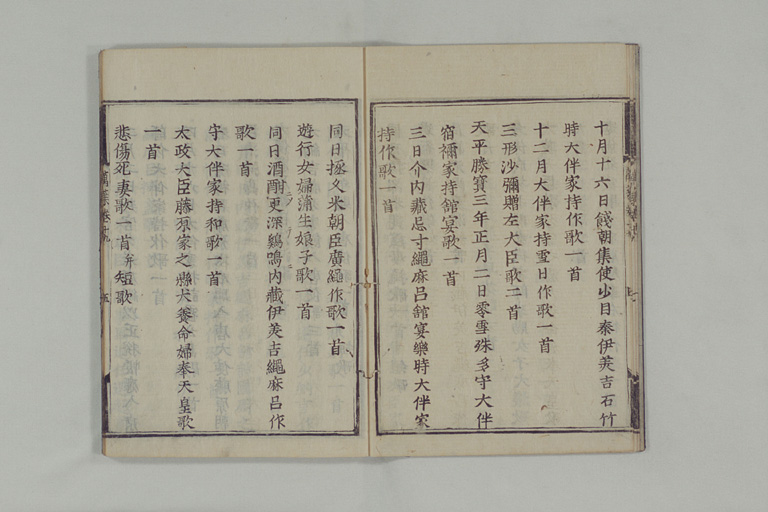 十月十六日餞朝集使少目秦伊美吉石竹
時大伴家持作歌一首
十二月大伴家持雪日作歌一首
三形沙彌贈左大臣歌二首
天平勝寶三年正月二日零雪殊多守大伴
宿禰家持舘宴歌一首
三日介内藏忌寸繩麻呂舘宴樂時大伴家
持作歌一首
同日掾久米朝臣廣繩作歌一首
遊行女婦蒲生娘子歌一首
同日酒酣更深鷄鳴内藏伊美吉繩麻呂作
歌一首
守大伴家持和歌一首
太政大臣藤原家之縣犬養命婦奉天皇歌
一首
悲傷死妻歌一首并短歌
萬葉卷十九
五